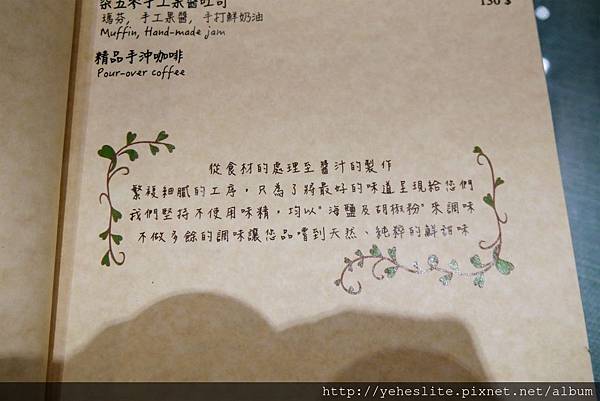 茶五木手工果醬吐司 130 $
瑪芬, 手工果醬, 手打鮮奶油
Muffin, Hand-made jam
精品手沖咖啡
Pour-over coffee
從食材的處理至醬汁的製作
繁複細膩的工序，只為了將最好的味道呈現給您們
我們堅持不使用味精，均以"海鹽及胡椒粉"來調味
不做多餘的調味讓您品嚐到天然、純粹的鮮甜味
http://yeheslite.pixnet.net/album